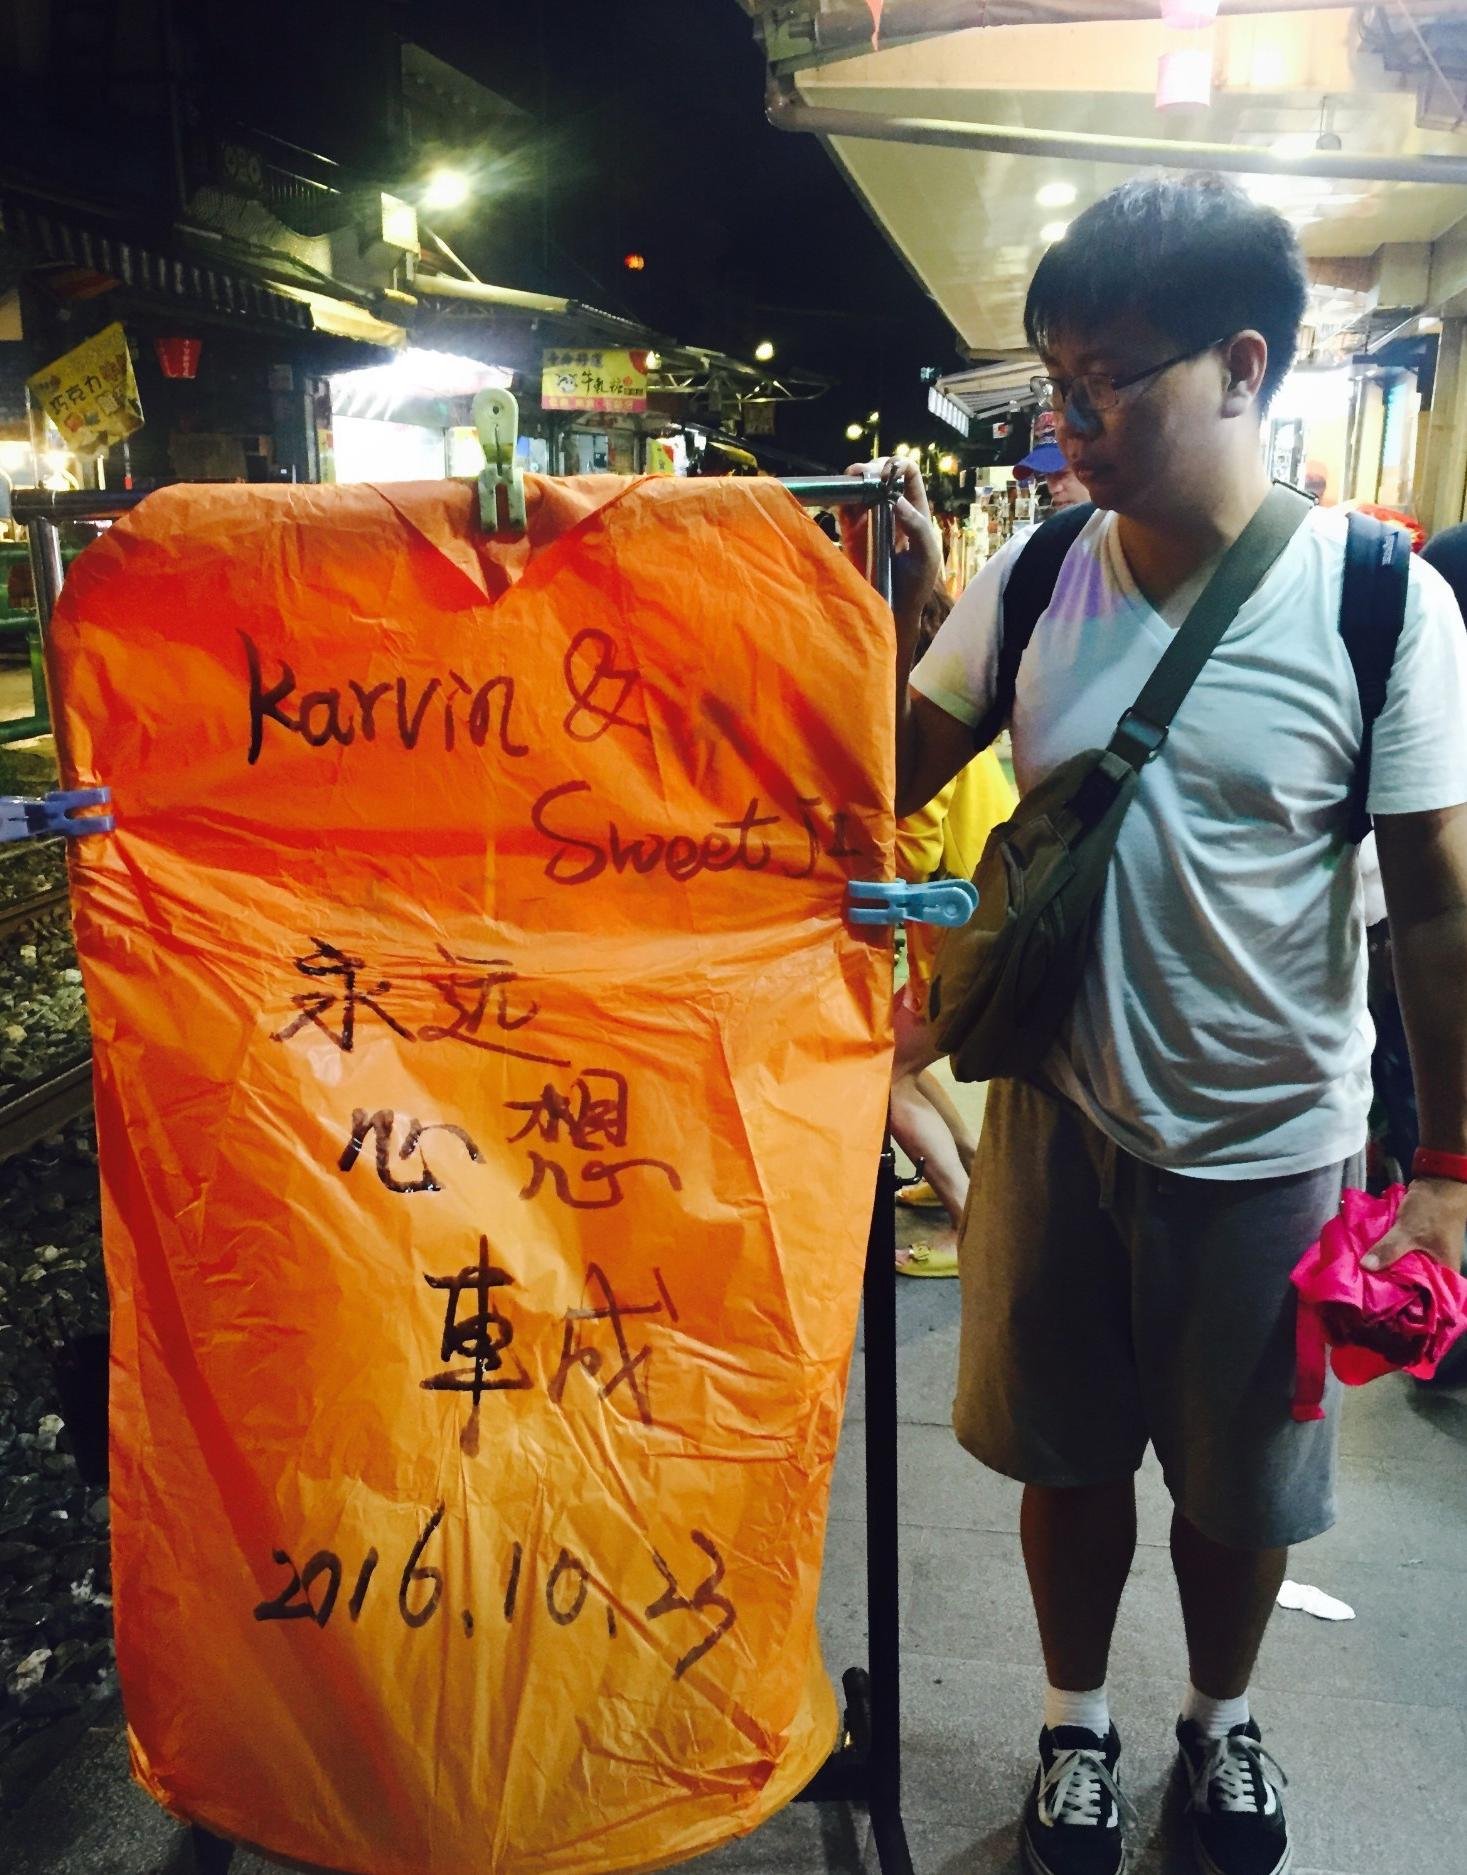 Karvin &
Sweet Ji
永远
心想
車成
2016.10.23
巧克力
牛軋糖